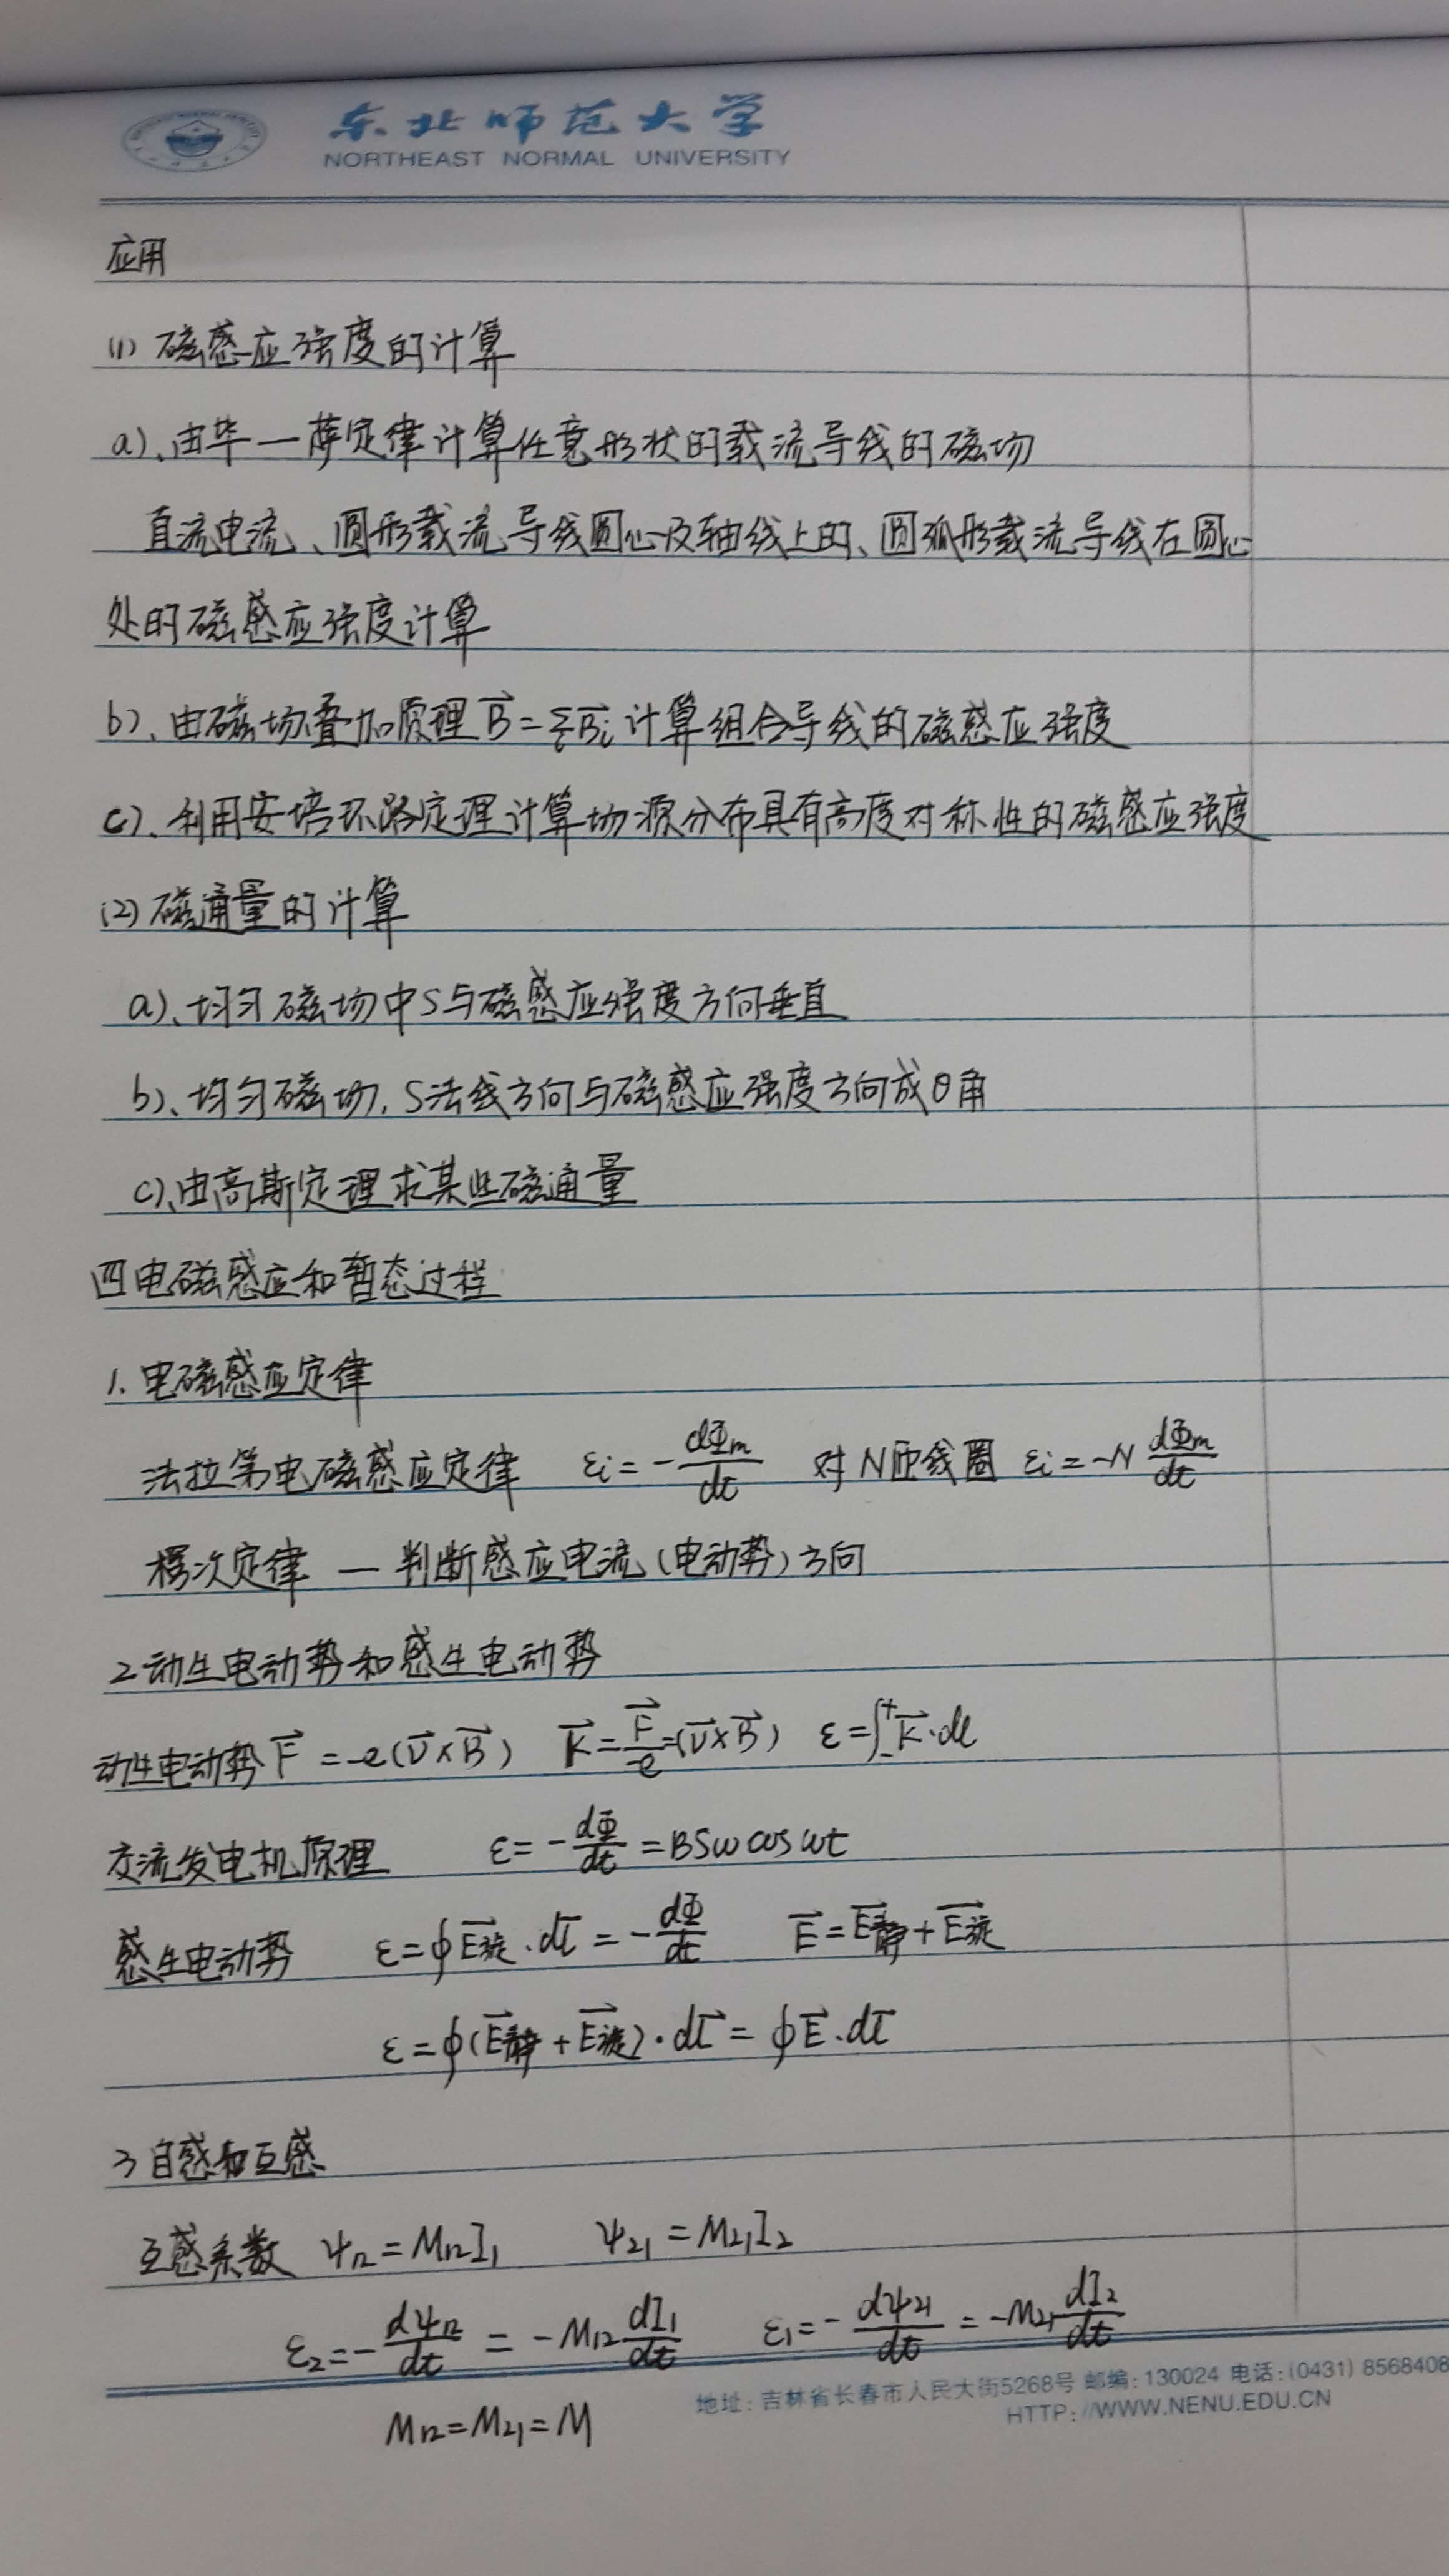 东北师范大学
NORTHEAST NORMAL UNIVERSITY
应用
(1) 磁感应强度的计算
a)、由毕一萨定律计算任意形状的载流导线的磁场
直流电流、圆形载流导线圆心及轴线上的、圆弧形载流导线在圆心
处的磁感应强度计算
b)、由磁场叠加原理 B⃗ = Σᵢ B⃗ᵢ 计算组合导线的磁感应强度
c)、利用安培环路定理计算场源分布具有高度对称性的磁感应强度
(2) 磁通量的计算
a)、均匀磁场中S与磁感应强度方向垂直
b)、均匀磁场, S法线方向与磁感应强度方向成θ角
c)、由高斯定理求某些磁通量
四 电磁感应和暂态过程
1. 电磁感应定律
法拉第电磁感应定律 εi = -dΦm/dt 对N匝线圈 εi = -N dΦm/dt
楞次定律 — 判断感应电流(电动势)方向
2 动生电动势和感生电动势
动生电动势 F⃗ = -e(v⃗×B⃗) K⃗ = F⃗/-e = (v⃗×B⃗) ε = ∫₋⁺ K⃗·dl
交流发电机原理 ε = -dΦ/dt = BSω cos ωt
感生电动势 ε = ∮E⃗旋·dl⃗ = -dΦ/dt E⃗ = E⃗静 + E⃗旋
ε = ∮(E⃗静 + E⃗旋)·dl⃗ = ∮E⃗·dl⃗
3 自感和互感
互感系数 ψ₁₂ = M₁₂I₁ ψ₂₁ = M₂₁I₂
ε₂ = -dψ₁₂/dt = -M₁₂ dI₁/dt ε₁ = -dψ₂₁/dt = -M₂₁ dI₂/dt
M₁₂ = M₂₁ = M
地址: 吉林省长春市人民大街5268号 邮编: 130024 电话: (0431) 8568408
HTTP://WWW.NENU.EDU.CN